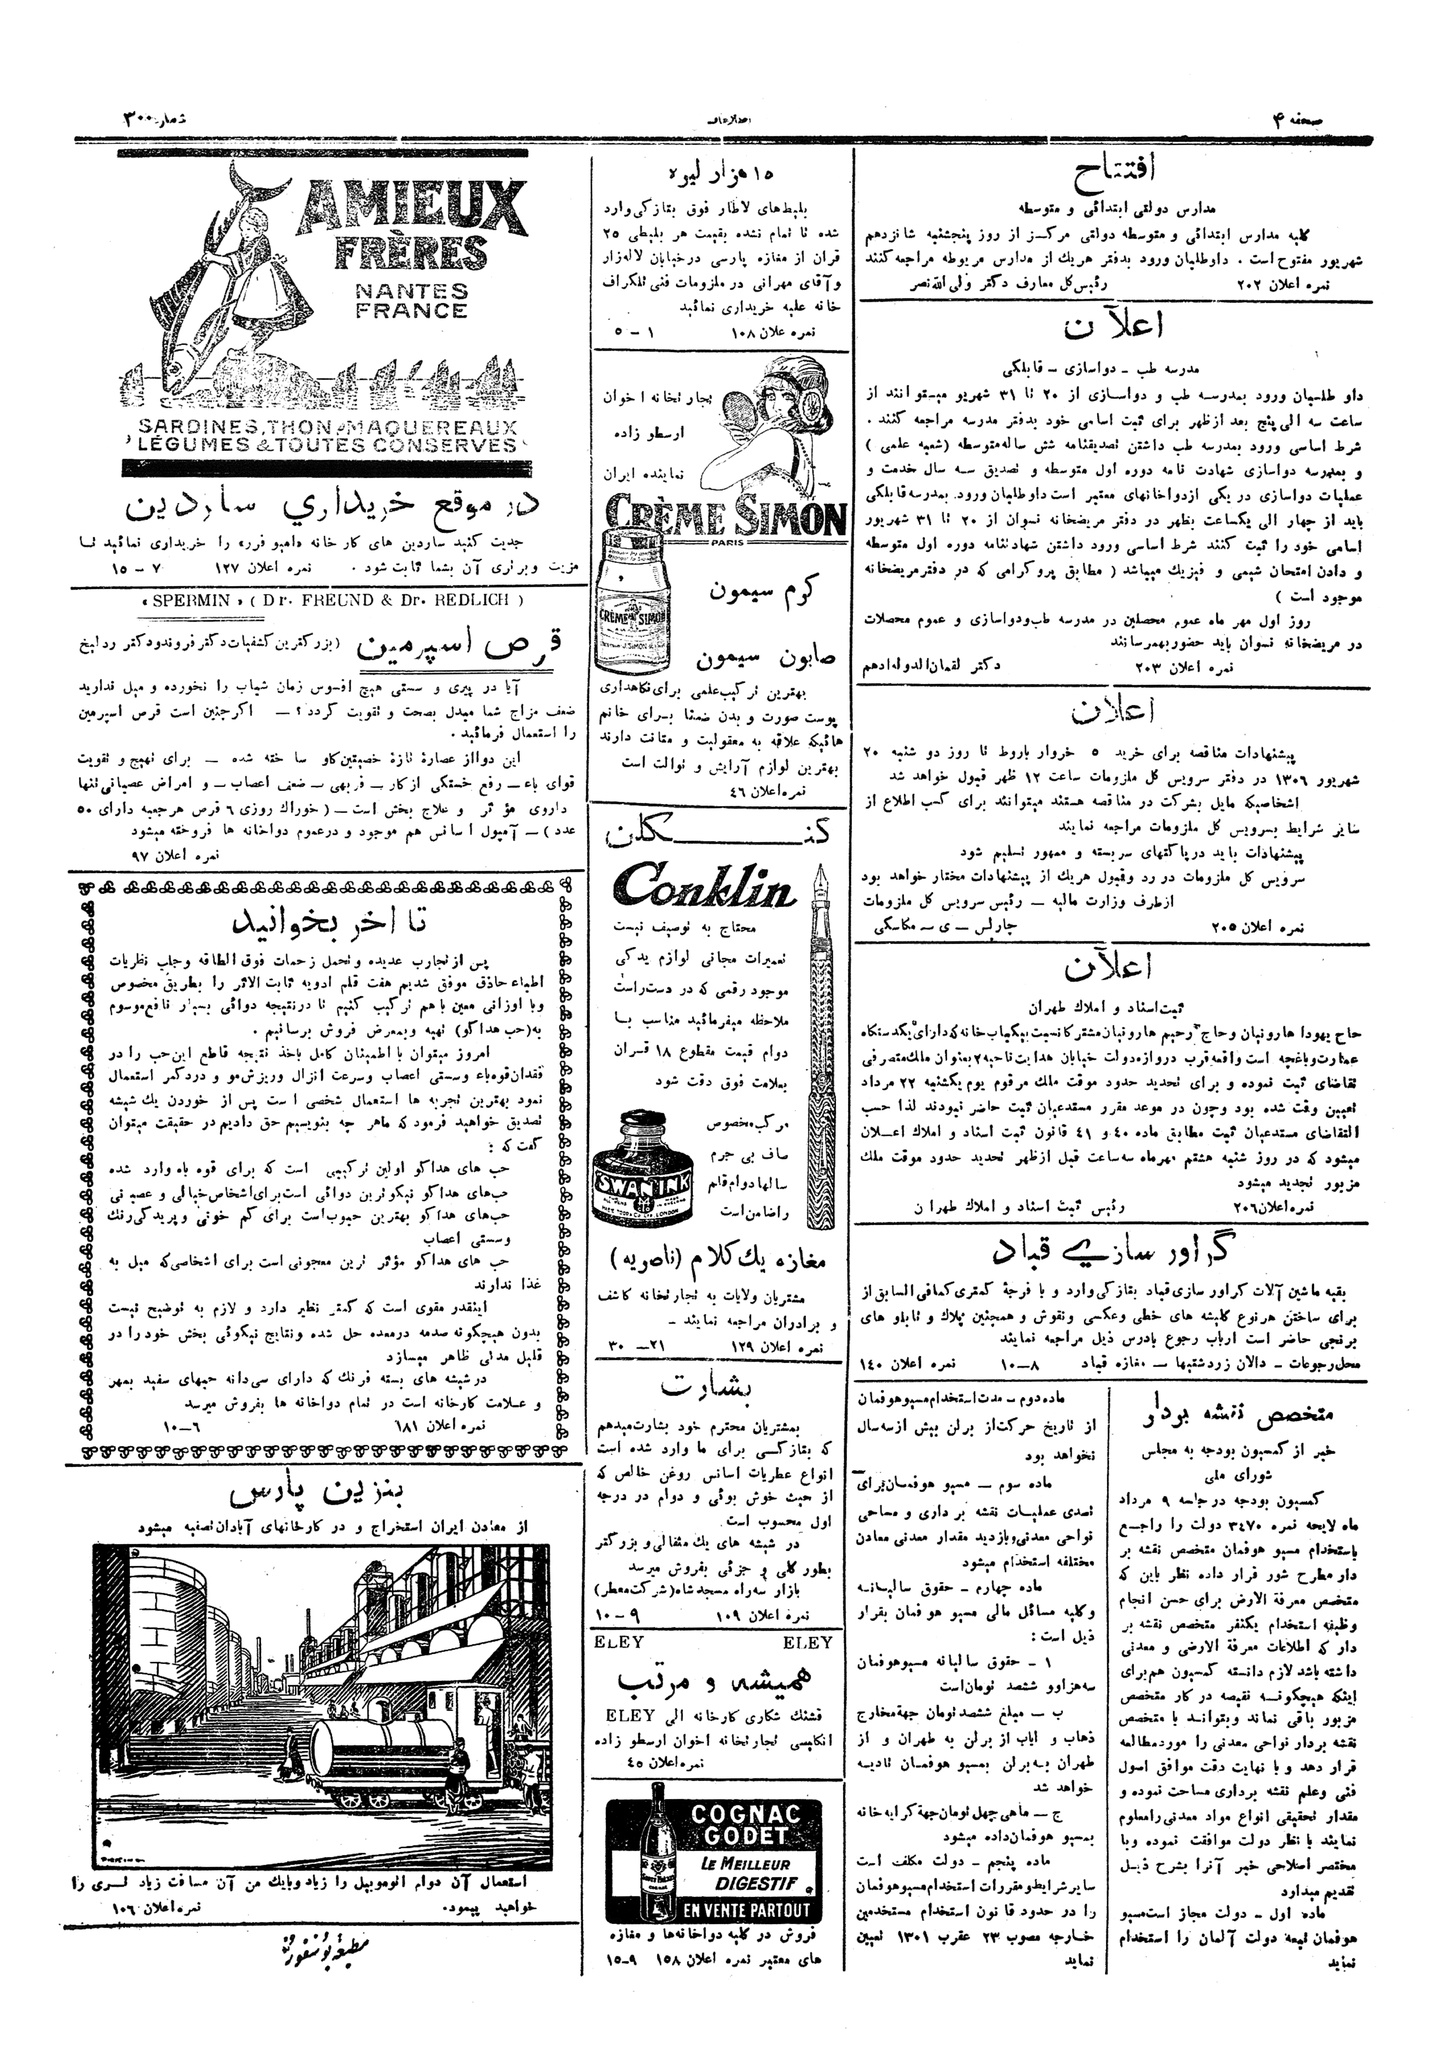 صفحه ۴
اطلاعات
شماره ۳۰۰
افتتاح
مدارس دولتی ابتدائی و متوسطه
کلیه مدارس ابتدائی و متوسطه دولتی مرکز از روز پنجشنبه شانزدهم
شهریور مفتوح است . داوطلبان ورود بدفتر هریك از مدارس مربوطه مراجعه کنند
نمره اعلان ۲۰۲ رئیس کل معارف دکتر ولی الله نصر
اعلان
مدرسه طب - دواسازی - قابلگی
داو طلبان ورود بمدرسه طب و دواسازی از ۲۰ تا ۳۱ شهریور میتوانند از
ساعت سه الی پنج بعد ازظهر برای ثبت اسامی خود بدفتر مدرسه مراجعه کنند .
شرط اساسی ورود بمدرسه طب داشتن تصدیقنامه شش ساله متوسطه ( شعبه علمی )
و بمدرسه دواسازی شهادت نامه دوره اول متوسطه و تصدیق سه سال خدمت و
عملیات دواسازی در یکی ازدواخانهای معتبر است داوطلبان ورود بمدرسه قابلگی
باید از چهار الی یکساعت بظهر در دفتر مریضخانه نسوان از ۲۰ تا ۳۱ شهریور
اسامی خود را ثبت کنند شرط اساسی ورود داشتن شهادتنامه دوره اول متوسطه
و دادن امتحان شیمی و فیزیك میباشد ( مطابق پروگرامی که در دفتر مریضخانه
موجود است )
روز اول مهر ماه عموم محصلین در مدرسه طب ودواسازی و عموم محصلات
در مریضخانه نسوان باید حضور بهمرسانند
نمره اعلان ۲۰۳ دکتر لقمان الدوله ادهم
اعلان
پیشنهادات مناقصه برای خرید ۵ خروار باروط تا روز دو شنبه ۲۰
شهریور ۱۳۰۶ در دفتر سرویس کل ملزومات ساعت ۱۲ ظهر قبول خواهد شد
اشخاصیکه مایل بشرکت در مناقصه هستند میتوانند برای کسب اطلاع از
سایر شرایط بسرویس کل ملزومات مراجعه نمایند
پیشنهادات باید درپاکتهای سربسته و ممهور تسلیم شود
سرویس کل ملزومات در رد وقبول هریك از پیشنهادات مختار خواهد بود
ازطرف وزارت مالیه — رئیس سرویس کل ملزومات
نمره اعلان ۲۰۵ چارلس — ی — مکاسکی
اعلان
ثبت اسناد و املاك طهران
حاج یهودا هارونیان وحاج رحیم هارونیان مشترکا نسبت بیکباب خانه که دارای یکدستگاه
عمارت وباغچه است واقعه قرب دروازه دولت خیابان هدایت ناحیه ۲ بعنوان ملك متصرفی
تقاضای ثبت نموده و برای تحدید حدود موقت ملك مرقوم یوم یکشنبه ۲۲ مرداد
تعیین وقت شده بود وچون در موعد مقرر مستدعیان ثبت حاضر نبودند لذا حسب
التقاضای مستدعیان ثبت مطابق ماده ۴۰ و ۴۱ قانون ثبت اسناد و املاك اعلان
میشود که در روز شنبه هشتم مهرماه سه ساعت قبل ازظهر تحدید حدود موقت ملك
مزبور تجدید میشود
نمره اعلان ۲۰۶ رئیس ثبت اسناد و املاك طهران
گراور سازی قباد
بقیه ماشین آلات گراور سازی قباد بتازگی وارد و با فرجهٔ کمتری کمافی السابق از
برای ساختن هرنوع کلیشه های خطی وعکسی ونقوش و همچنین پلاك و تابلو های
برنجی حاضر است ارباب رجوع بادرس ذیل مراجعه نمایند
محل رجوعات - دالان زردشتیها — مغازه قباد ۸—۱۰ نمره اعلان ۱۴۰
متخصص نقشه بردار
خبر از کمسیون بودجه به مجلس
شورای ملی
کمسیون بودجه در جلسه ۹ مرداد
ماه لایحه نمره ۳۴۷۰ دولت را راجع
باستخدام مسیو هوفمان متخصص نقشه بر
دار مطرح شور قرار داده نظر باین که
متخصص معرفة الارض برای حسن انجام
وظیفه استخدام یکنفر متخصص نقشه بر
دار که اطلاعات معرفة الارضی و معدنی
داشته باشد لازم دانسته کمسیون هم برای
اینکه هیچگونه نقیصه در کار متخصص
مزبور باقی نماند وبتواند با متخصص
نقشه بردار نواحی معدنی را مورد مطالعه
قرار دهد و با نهایت دقت موافق اصول
فنی وعلم نقشه برداری مساحت نموده و
مقدار تحقیقی انواع مواد معدنی را معلوم
نمایند با نظر دولت موافقت نموده وبا
مختصر اصلاحی خبر آنرا بشرح ذیل
تقدیم میدارد
ماده اول - دولت مجاز است مسیو
هوفمان تبعه دولت آلمان را استخدام
نماید
ماده دوم - مدت استخدام مسیو هوفمان
از تاریخ حرکت از برلن بیش از سه سال
نخواهد بود
ماده سوم — مسیو هوفمان برای
تصدی عملیات نقشه برداری و مساحی
نواحی معدنی و بازدید مقدار معدنی معادن
مختلفه استخدام میشود
ماده چهارم - حقوق سالیانه
وکلیه مسائل مالی مسیو هوفمان بقرار
ذیل است :
۱ - حقوق سالیانه مسیو هوفمان
سه هزار و ششصد تومان است
ب — مبلغ ششصد تومان جهة مخارج
ذهاب و ایاب از برلن به طهران و از
طهران به برلن بمسیو هوفمان تادیه
خواهد شد
ج — ماهی چهل تومان جهة کرایه خانه
بمسیو هوفمان داده میشود
ماده پنجم - دولت مکلف است
سایر شرایط و مقررات استخدام مسیو هوفمان
را در حدود قانون استخدام مستخدمین
خارجه مصوب ۲۳ عقرب ۱۳۰۱ تعیین
نماید
۱۵ هزار لیره
بلیط‌های لاطار فوق بتازگی وارد
شده تا تمام نشده بقیمت هر بلیطی ۲۵
قران از مغازه پارسی درخیابان لاله‌زار
و آقای مهرانی در ملزومات فنی تلگراف
خانه علیه خریداری نمائید
نمره علان ۱۰۸ ۱ — ۵
تجارتخانه اخوان
ارسطو زاده
نماینده ایران
CRÈME SIMON
PARIS
CRÈME SIMON
کرم سیمون
صابون سیمون
بهترین ترکیب علمی برای نگاهداری
پوست صورت و بدن ضمنا برای خانم
هائیکه علاقه به معقولیت و متانت دارند
بهترین لوازم آرایش و توالت است
نمره اعلان ۴۶
کنکلن
Conklin
محتاج به توصیف نیست
تعمیرات مجانی لوازم یدکی
موجود رقمی که در دست راست
ملاحظه میفرمائید مناسب با
دوام قیمت مقطوع ۱۸ قران
بعلامت فوق دقت شود
مرکب مخصوص
صاف بی جرم
سالها دوام قلم
را ضامن است
SWAN INK
مغازه یك كلام (ناصریه)
مشتریان ولایات به تجارتخانه کاشف
و برادران مراجعه نمایند -
نمره اعلان ۱۲۹ ۲۱— ۳۰
بشارت
بمشتریان محترم خود بشارت میدهم
که بتازگی برای ما وارد شده است
انواع عطریات اسانس روغن خالص که
از حیث خوش بوئی و دوام در درجه
اول محسوب است
در شیشه های یك مثقالی و بزرگتر
بطور کلی و جزئی بفروش میرسد
بازار سه راه مسجد شاه (شرکت معطر)
نمره اعلان ۱۰۹ ۹—۱۰
ELEY ELEY
همیشه و مرتب
فشنك شکاری کارخانه الی ELEY
انگلیسی تجارتخانه اخوان ارسطو زاده
نمره اعلان ۴۵
COGNAC
GODET
LE MEILLEUR
DIGESTIF
EN VENTE PARTOUT
فروش در کلیه دواخانه‌ها و مغازه
های معتبر نمره اعلان ۱۵۸ ۹—۱۵
AMIEUX
FRÈRES
NANTES
FRANCE
SARDINES, THON, MAQUEREAUX
LÉGUMES & TOUTES CONSERVES
در موقع خریداری ساردین
جدیت کنید ساردین های کارخانه «امیو فرر» را خریداری نمائید تا
مزیت و برتری آن بشما ثابت شود . نمره اعلان ۱۲۷ ۷ — ۱۵
« SPERMIN » ( Dr. FREUND & Dr. REDLICH )
قرص اسپرمین (بزرگترین کشفیات دکتر فروند و دکتر ردلیخ
آیا در پیری و سستی هیچ افسوس زمان شباب را نخورده و میل ندارید
ضعف مزاج شما مبدل بصحت و تقویت گردد ؟ — اگر چنین است قرص اسپرمین
را استعمال فرمائید .
این دوا از عصارهٔ تازهٔ خصیتین گاو ساخته شده — برای تهییج و تقویت
قوای باء — رفع خستگی از کار — فربهی — ضعف اعصاب — و امراض عصبانی تنها
داروی مؤثر و علاج بخش است — ( خوراك روزی ۶ قرص هر جعبه دارای ۵۰
عدد ) — آمپول اسانس هم موجود و درعموم دواخانه ها فروخته میشود
نمره اعلان ۹۷
تا اخر بخوانید
پس از تجارب عدیده و تحمل زحمات فوق الطاقه وجلب نظریات
اطباء حاذق موفق شدیم هفت قلم ادویه ثابت الاثر را بطریق مخصوص
وبا اوزانی معین باهم ترکیب کنیم تا درنتیجه دوائی بسیار نافع موسوم
به(حب هداکو) تهیه وبمعرض فروش برسانیم .
امروز میتوان با اطمینان کامل باخذ نتیجه قاطع این حب را در
فقدان قوه باء وسستی اعصاب وسرعت انزال وریزش مو و درد کمر استعمال
نمود بهترین تجربه ها استعمال شخصی است پس از خوردن یك شیشه
تصدیق خواهید فرمود که ماهر چه بنویسیم حق داریم در حقیقت میتوان
گفت که :
حب های هداکو اولین ترکیبی است که برای قوه باه وارد شده
حب‌های هداکو نیکوترین دوائی است برای اشخاص خیالی و عصبانی
حب‌های هداکو بهترین حبوب است برای کم خونی و پریدگی رنك
وسستی اعصاب
حب های هداکو مؤثر ترین معجونی است برای اشخاصی که میل به
غذا ندارند
اینقدر مقوی است که کمتر نظیر دارد و لازم به توضیح نیست
بدون هیچگونه صدمه درمعده حل شده ونتایج نیکوئی بخش خود را در
قلیل مدتی ظاهر میسازد
در شیشه های بسته فرنك که دارای سی دانه حبهای سفید بمهر
و علامت کارخانه است در تمام دواخانه ها بفروش میرسد
نمره اعلان ۱۸۱ ۶—۱۰
بنزین پارس
از معادن ایران استخراج و در کارخانهای آبادان تصفیه میشود
استعمال آن دوام اتوموبیل را زیاد وبایك من آن مسافت زیاد تری را
خواهید پیمود. نمره اعلان ۱۰۶
مطبعهٔ بوسفور